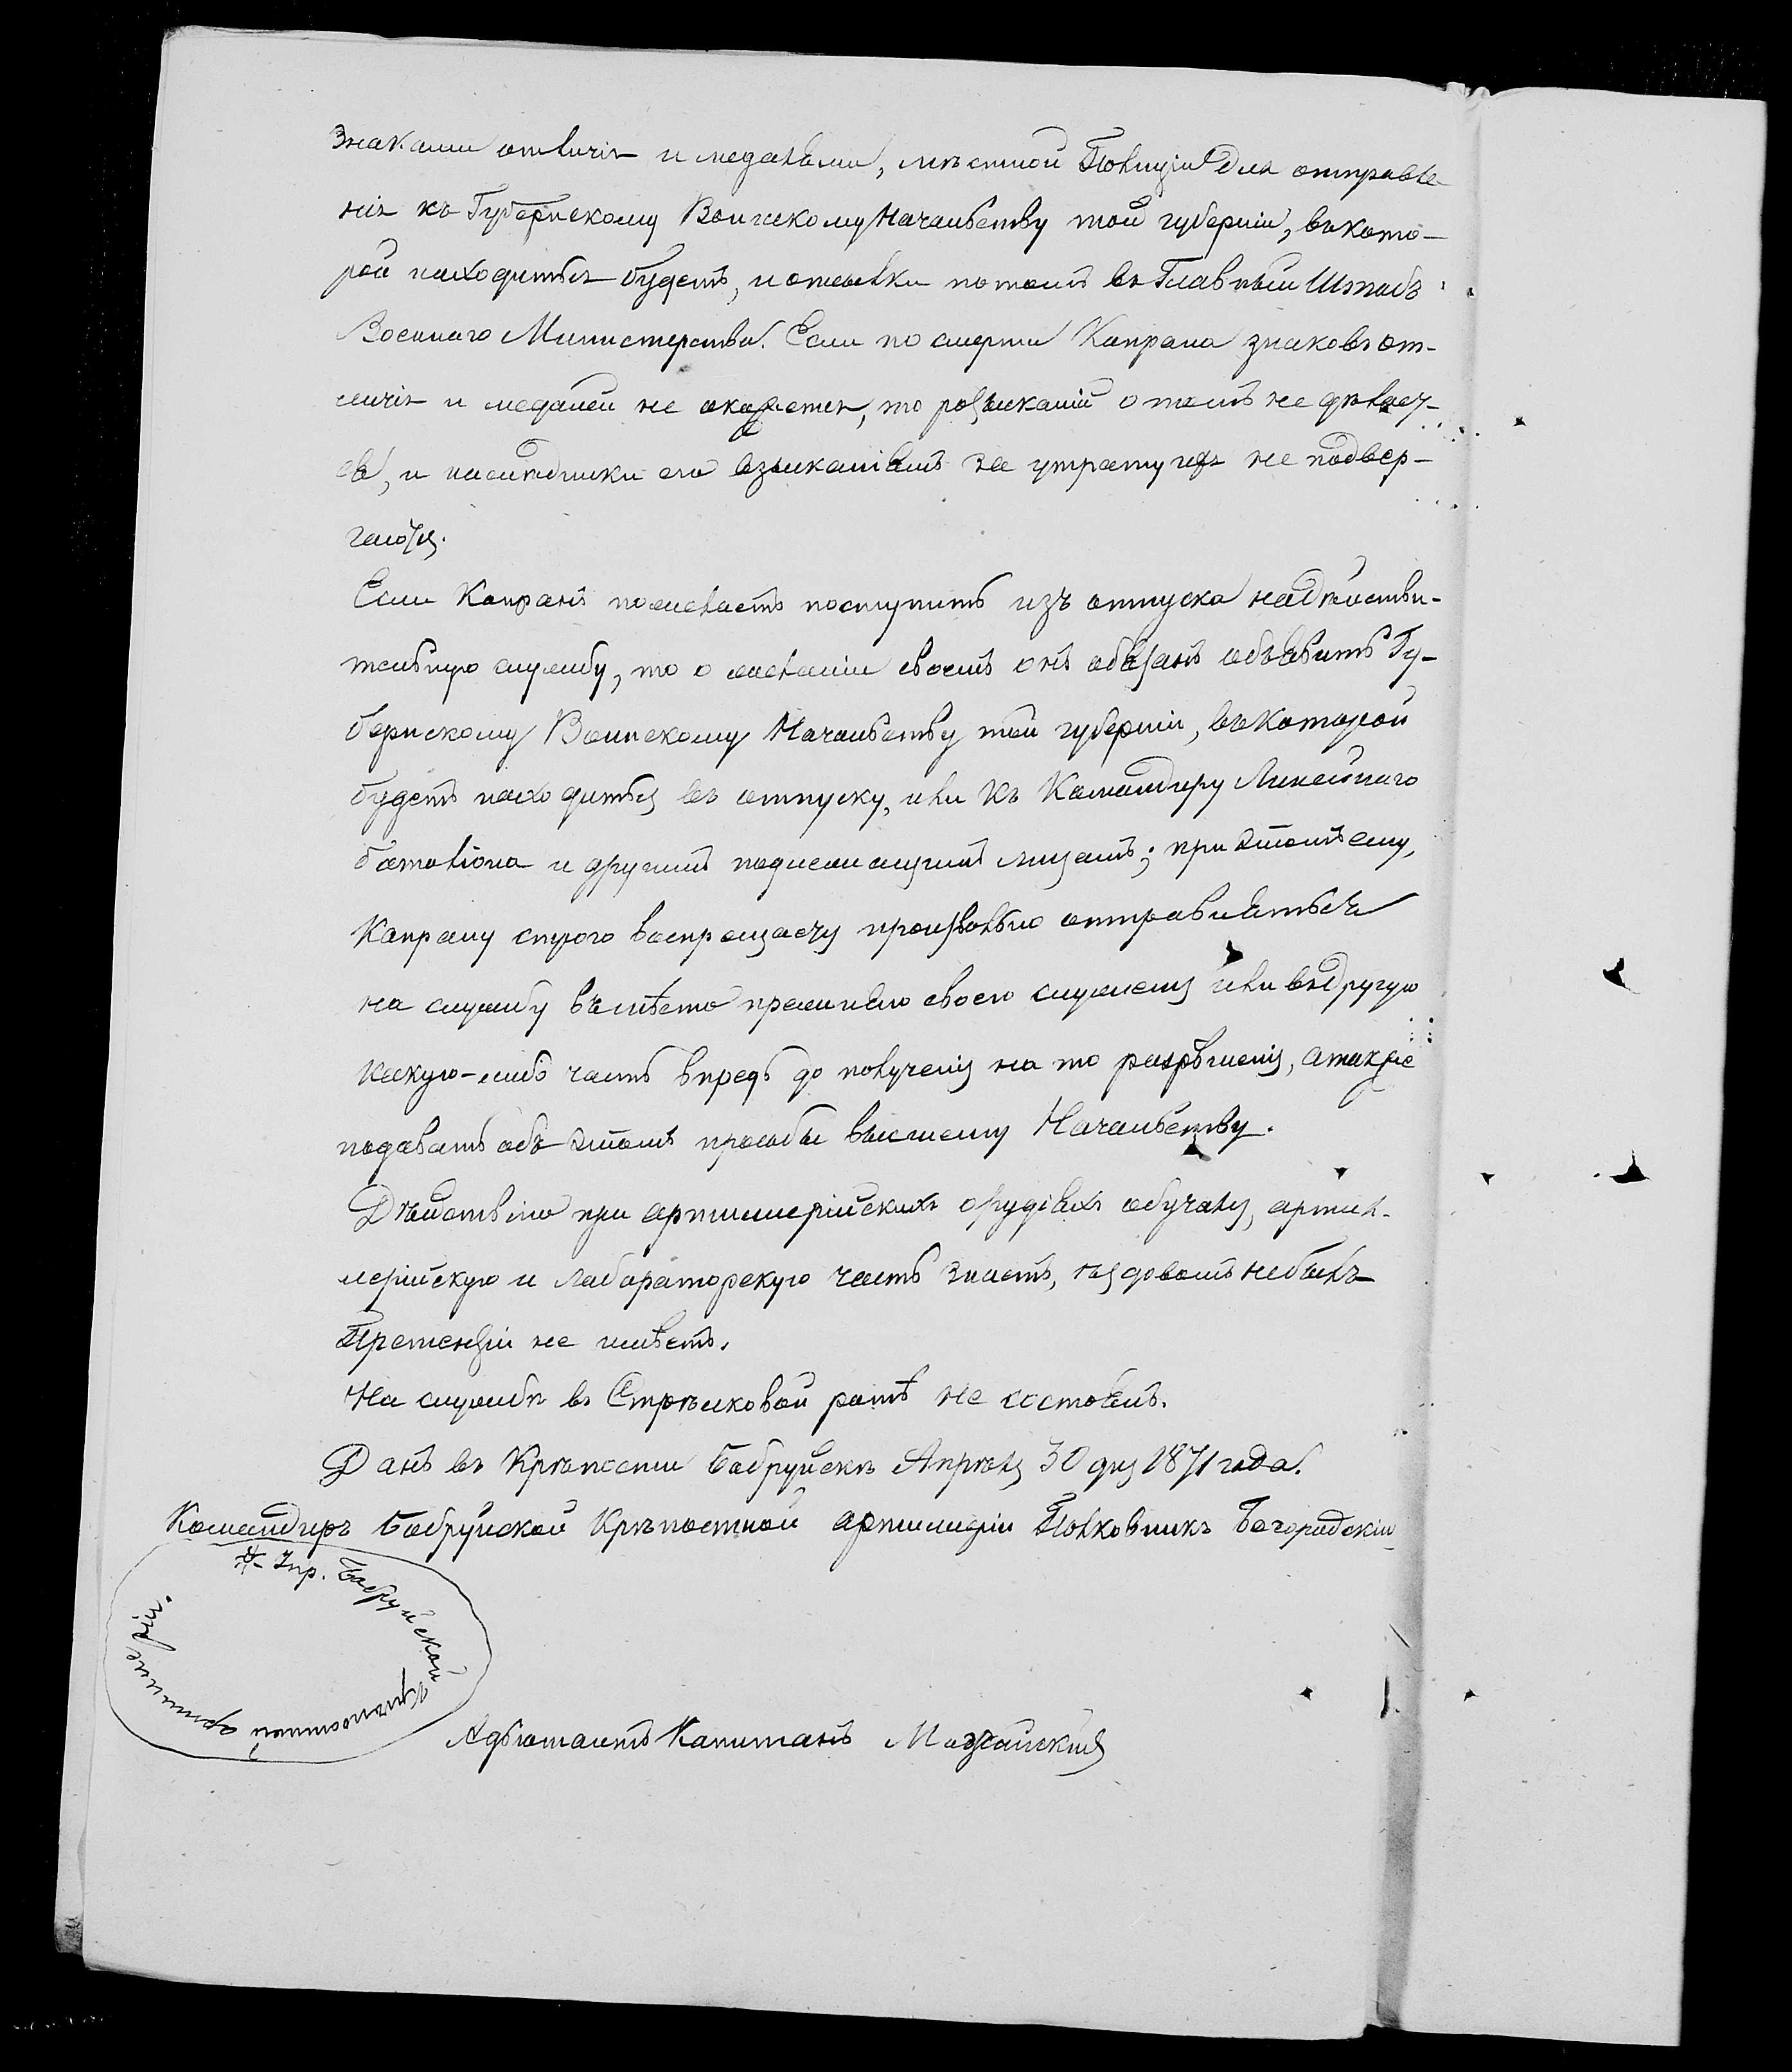 знаками отличія и медалями, мѣстной Полиціи для отправле
нія къ Губернскому Воинскому Начальству той губерніи, въ кото-
рой находиться будетъ, и отсылки потомъ въ Главный Штабъ
Военнаго Министерства. Если по смерти Капрана знаковъ от-
личія и медалей не окажется, то розысканій о томъ не дѣлает-
ся, и наслѣдники его взысканіямъ за утрату ихъ не подвер-
гаются.
Если Капранъ пожелаетъ поступить изъ отпуска на дѣйстви-
тельную службу, то о желаніи своемъ онъ обязанъ объявить Гу-
бернскому Воинскому Начальству той губерніи, въ которой
будетъ находиться въ отпуску, или къ Командиру Линейнаго
баталіона и другимъ подлежащимъ лицамъ; при этомъ ему,
Капрану строго воспрещается произвольно отправляться
на службу въ мѣсто прежняго своего служенія или въ другую
какую-либо часть впредь до полученія на то разрѣшенія, а также
подавать объ этомъ прособы высшему Начальству.
Дѣйствію при артиллерійскихъ орудіяхъ обучался, артил-
лерійскую и лабораторскую часть знаетъ, ѣздовымъ не былъ
Претензіи не имѣетъ.
На службѣ въ Стрѣлковой ротѣ не состоялъ.
Данъ въ Крѣпости Бобруйскѣ Апрѣля 30 дня 1871 года.
Командиръ Бобруйской Крѣпостной артиллеріи Полковникъ Богородскій
Упр. Бобруйской
Крѣпостной артиллеріи.
Адъютантъ Капитанъ